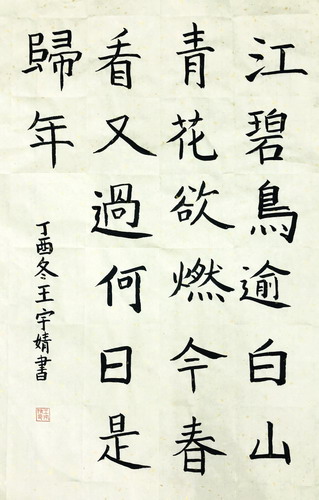 江碧鳥逾白山
青花欲燃今春
看又過何日是
歸年
丁酉冬王宇婧書